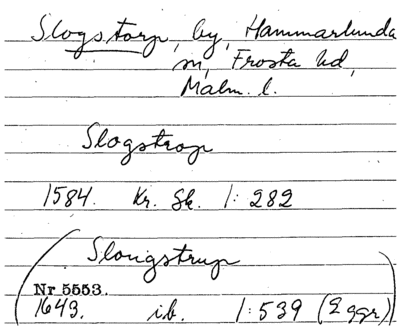 Slogstorp, by, Hammarlunda
sn, Frosta hd,
Malm. l.
Slogstrop
1584. Kr. Sk. 1: 282
(Slougstrup
Nr 5553.
1643. ib. 1:539 (2 ggr))